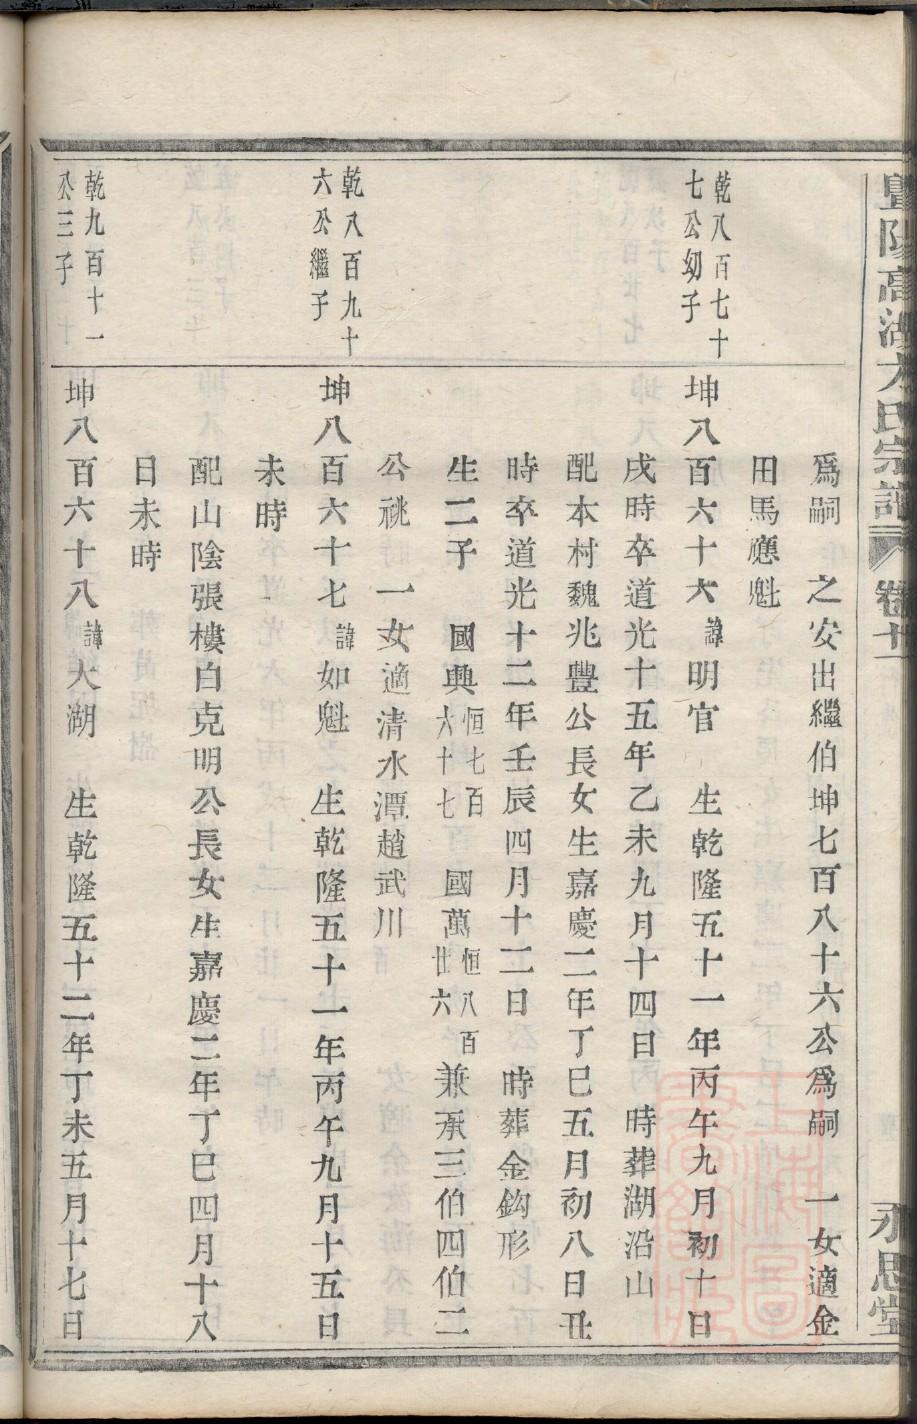 暨陽高湖方氏宗譜 卷十一 永思堂
爲嗣 之安出繼伯坤七百八十六公爲嗣 一女適金
田馬應魁
乾八百七十
七公幼子
坤八百六十六諱明官 生乾隆五十一年丙午九月初十日
戌時卒道光十五年乙未九月十四日 時葬湖沿山
配本村魏兆豐公長女生嘉慶二年丁巳五月初八日丑
時卒道光十二年壬辰四月十二日 時葬金鈎形
生二子 國興恒七百六十七 國萬恒八百廿六 兼承三伯四伯二
公祧 一女適清水潭趙武川
乾八百九十
六公繼子
坤八百六十七諱如魁 生乾隆五十一年丙午九月十五日
未時
配山陰張樓白克明公長女生嘉慶二年丁巳四月十八
日未時
乾九百十一
公三子
坤八百六十八諱大湖 生乾隆五十二年丁未五月十七日